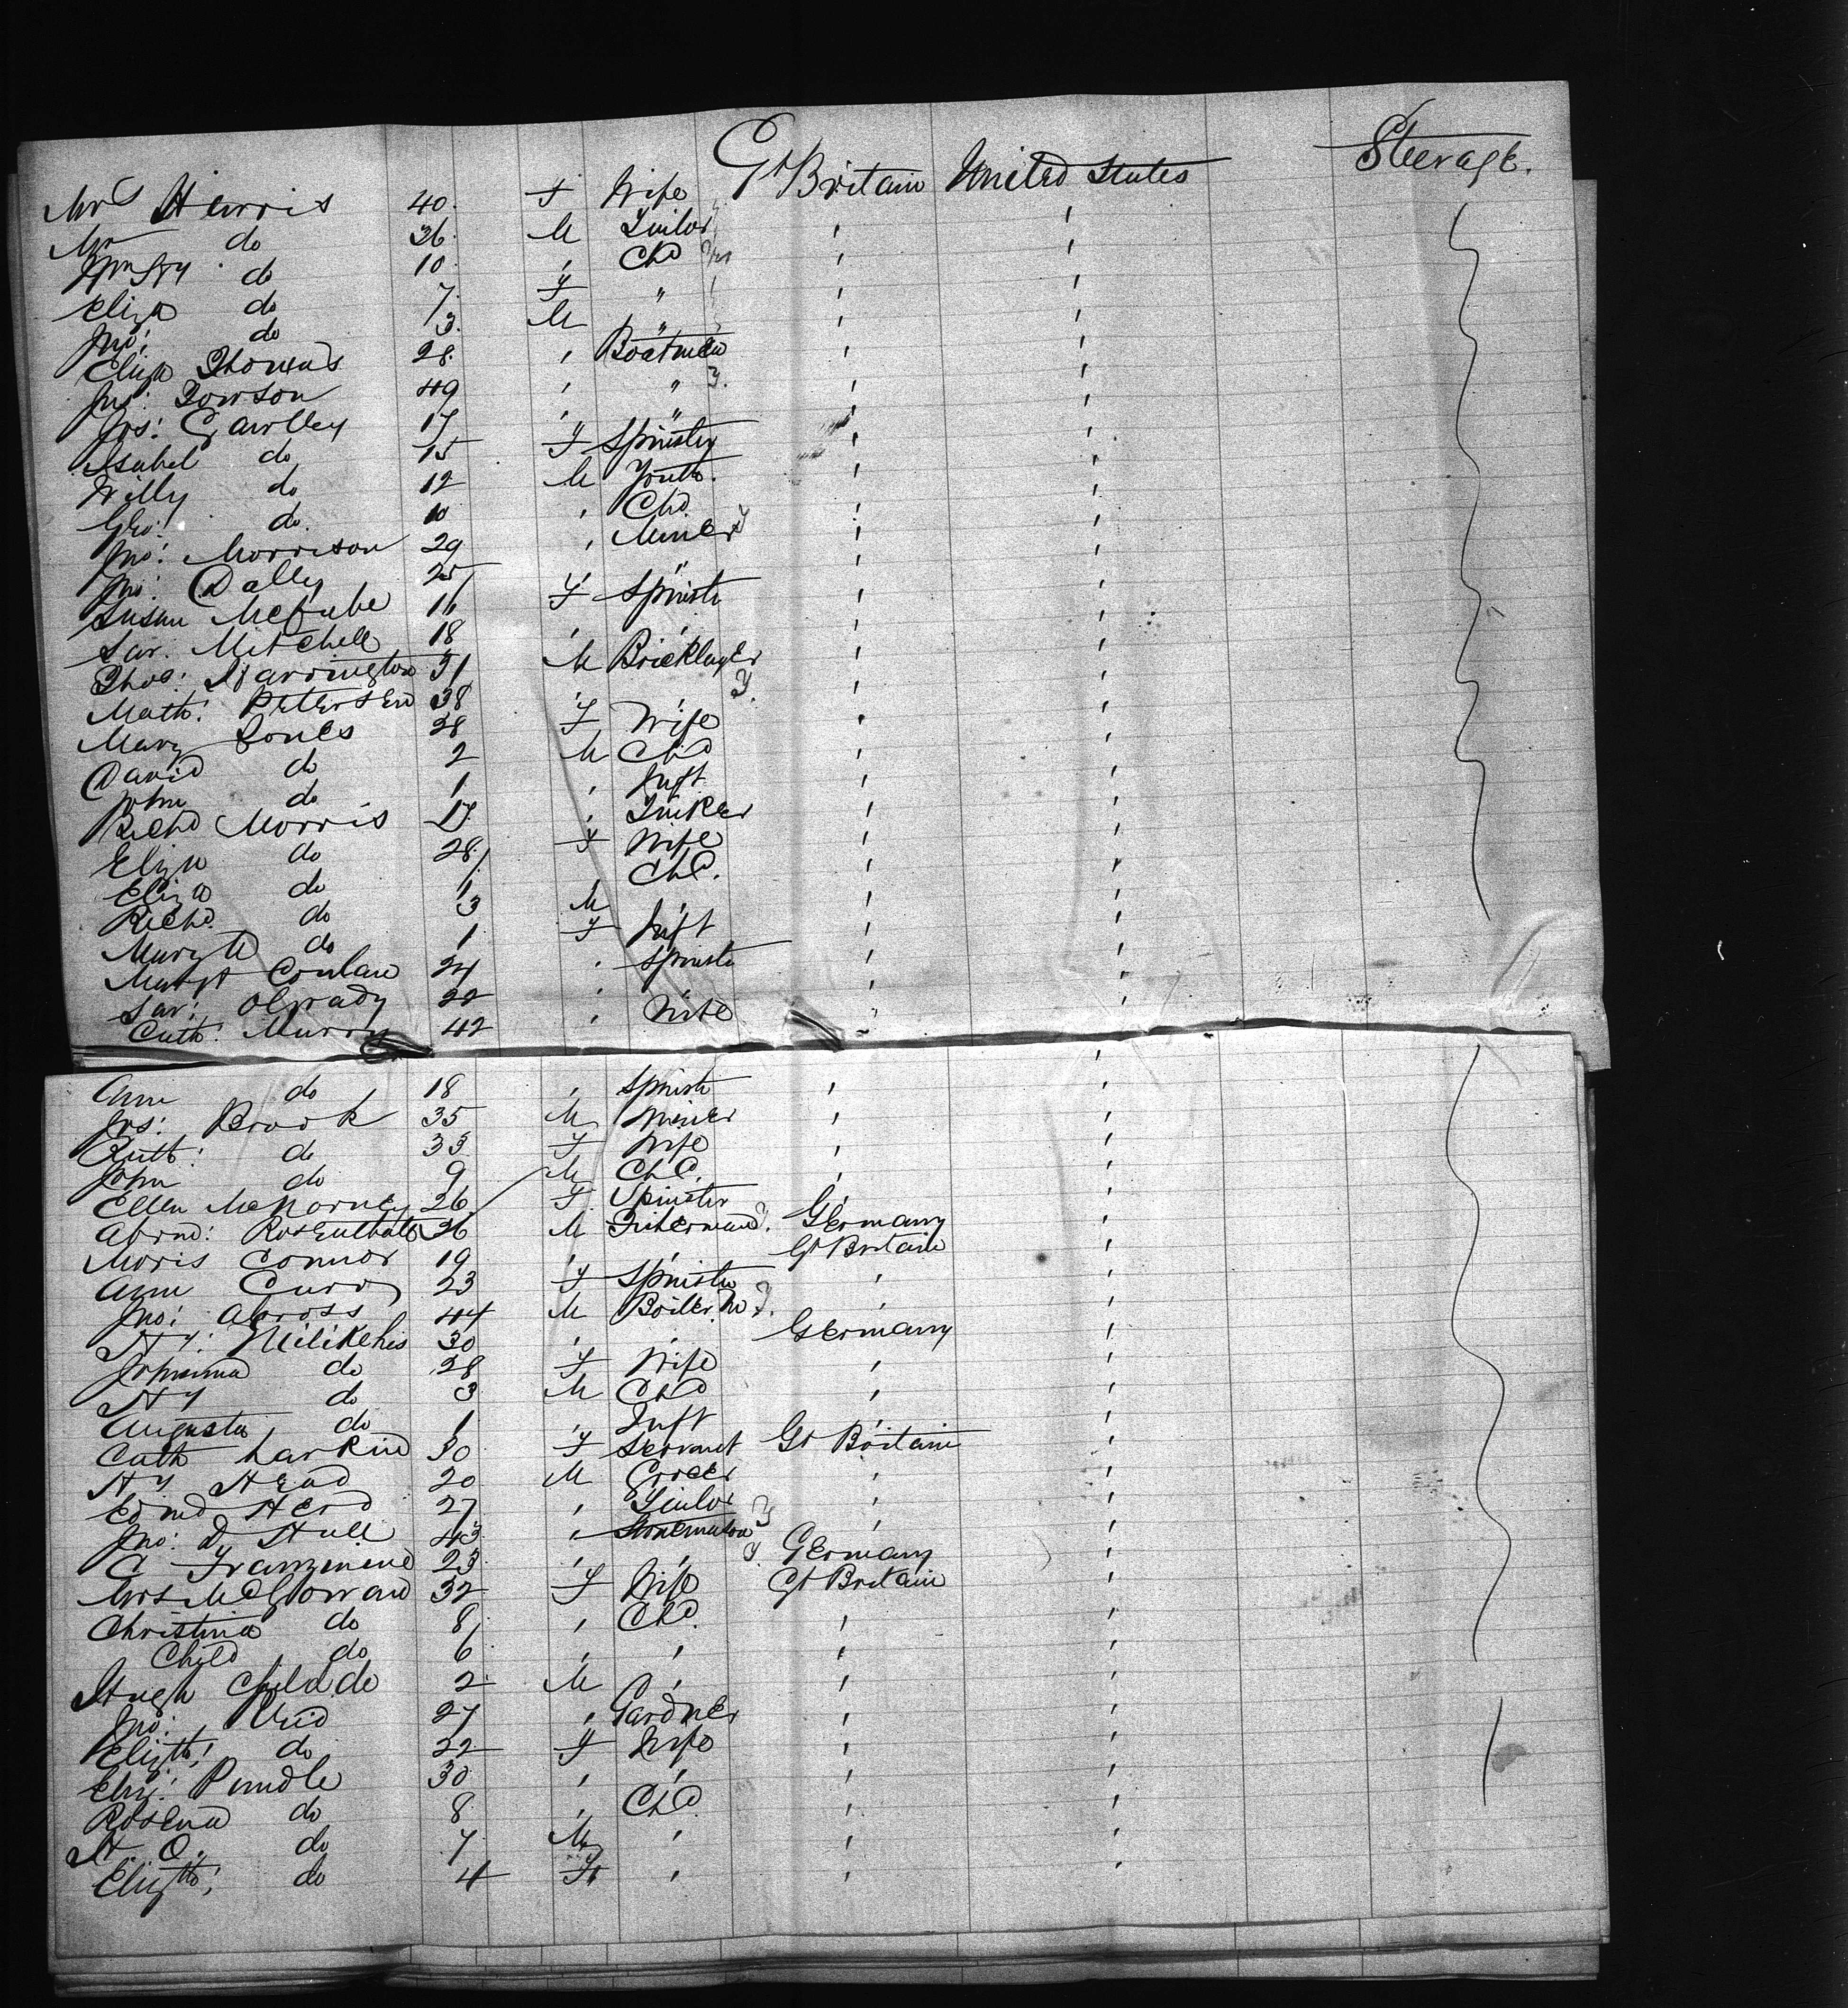 Mrs Harris 40 F Wife Gt Britain United States Steerage.
Mr do 36 M Tailor " "
do 10 " Chd " "
Eliza do 7 F " " "
Jno: do 3 M " " "
Eliza Thomas 28 " Boatman " "
Jno: Towson 49 " " " "
Jos: Gawlley 17 " " " "
Isabel do 15 F Spinster " "
Willy do 12 M Youth " "
Geo: do. 10 " Chd " "
Jno: Morrison 29 " Miner " "
Jno: Dally 25 " " " "
Susan McCabe 16 F Spinstr " "
Sar. Mitchell 18 " " " "
Thos: Harrington 31 M Bricklayer " "
Math: Petersen 38 " " " "
Mary Jones 28 F Wife " "
David do 2 M Chd " "
John do 1 " Inft " "
Richd Morris 27 " Tinker " "
Eliza do 28 F Wife " "
Eliza do " Chd. " "
Richd. do 3 M " " "
Mary A do 1 F Inft " "
Margt Conlan 24 " Spinstr " "
Sar: OGrady 22 " " " "
Cath: Murry 42 " Wife " "
Ann do 18 " Spinstr " "
Jos: Brook 35 M Miner " "
Ruth: do 33 F Wife " "
John do 9 M Chd. " "
Ellen McNorney 26 F Spinster " "
Abrm: Rosenthal 36 M Fisherman Germany "
Moris Connor 19 " " Gt Britain "
Ann Curry 23 F Spinster " "
Jno: Abross 44 M Boiler M. " "
Hy: Milikehis 30 " " Germany "
Johanna do 28 F Wife " "
Hy do 3 M Chd " "
Augusta do 1 " Inft " "
Cath Larkin 30 F Servant Gt Britain "
Hy Head 20 M Grocer " "
Edmd Herd 27 " Tailor " "
Jno: D. Hull 43 " Stonemason " "
C 23 " " Germany "
Mrs McGowan 32 F Wife Gt Britain "
Christina do 8 " Chd. " "
Child do 6 " " " "
Hugh Child do 2 M " " "
Jno: Reid 27 " Gardner " "
Elizth: do 22 F Wife " "
Eliz: Rundle 30 " " " "
Rosena do 8 " Chd " "
H. O. do 7 M " " "
Elizth: do 4 F " " "